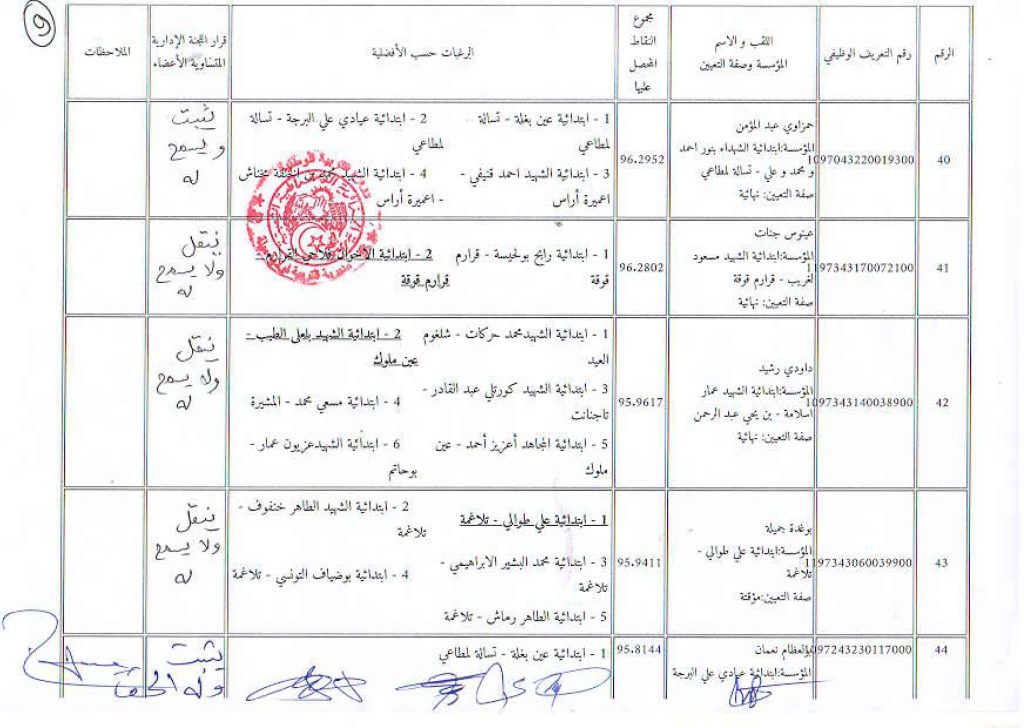 9
الرقم
رقم التعريف الوظيفي
اللقب و الاسم
المؤسسة وصفة التعيين
مجموع
النقاط
المحصل
عليها
الرغبات حسب الأفضلية
قرار اللجنة الإدارية
المتساوية الأعضاء
الملاحظات
40
1097043220019300
حمزاوي عبد المؤمن
المؤسسة:ابتدائية الشهداء بنور احمد
و محمد و علي - تسالة لمطاعي
صفة التعيين: نهائية
96.2952
1 - ابتدائية عين بغلة - تسالة
لمطاعي
2 - ابتدائية عيادي علي البرجة - تسالة
لمطاعي
3 - ابتدائية الشهيد احمد قنيفي -
اعميرة أراس
4 - ابتدائية الشهيد
- اعميرة أراس
يثبت
و يسمح
له
41
1197343170072100
عينوس جنات
المؤسسة:ابتدائية الشهيد مسعود
لغريب - قرارم قوقة
صفة التعيين: نهائية
96.2802
1 - ابتدائية رابح بولحيسة - قرارم
قوقة
2 - ابتدائية الاخوان فلاحي القرارم -
قرارم قوقة
ينتقل
ولا يسمح
له
42
1097343140038900
داودي رشيد
المؤسسة:ابتدائية الشهيد عمار
اسلامة - بن يحي عبد الرحمن
صفة التعيين: نهائية
95.9617
1 - ابتدائية الشهيدمحمد حركات - شلغوم
العيد
2 - ابتدائية الشهيد بلعلى الطيب -
عين ملوك
3 - ابتدائية الشهيد كورتلي عبد القادر -
تاجنانت
4 - ابتدائية مسعي محمد - المشيرة
5 - ابتدائية المجاهد أعزيز أحمد - عين
ملوك
6 - ابتدائية الشهيدعزيون عمار -
بوحاتم
ينتقل
ولا يسمح
له
43
1197343060039900
بوغدة جميلة
المؤسسة:ابتدائية علي طوالي -
تلاغمة
صفة التعيين:مؤقتة
95.9411
1 - ابتدائية علي طوالي - تلاغمة
2 - ابتدائية الشهيد الطاهر خنفوف -
تلاغمة
3 - ابتدائية محمد البشير الابراهيمي -
تلاغمة
4 - ابتدائية بوضياف التونسي - تلاغمة
5 - ابتدائية الطاهر رماش - تلاغمة
ينتقل
ولا يسمح
له
44
1097243230117000
بالعظام نعمان
المؤسسة:ابتدائية عيادي علي البرجة
95.8144
1 - ابتدائية عين بغلة - تسالة لمطاعي
يثبت